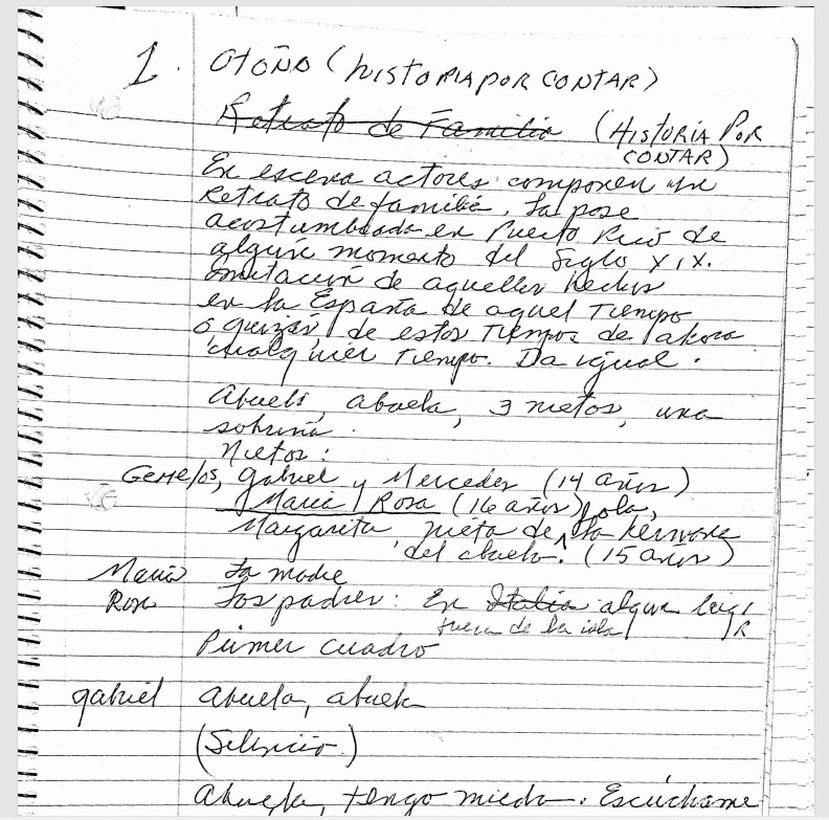 1. OTOÑO (HISTORIA POR CONTAR)
Retrato de Familia (HISTORIA POR
CONTAR)
En escena actores componen un
Retrato de familia. La pose
acostumbrada en Puerto Rico de
algún momento del Siglo XIX.
Imitación de aquellos hechos
en la España de aquel Tiempo
o quizás, de estos Tiempos de ahora
cualquier Tiempo. Da igual.
Abuelo, abuela, 3 nietos, una
sobrina.
Nietos:
Gemelos, Gabriel y Mercedes (14 años)
María Rosa (16 años)
Margarita, nieta de Lola, la hermana
del abuelo. (15 años)
María La madre
Rosa Los padres: En Italia algun lugar
fuera de la isla
Primer cuadro
gabriel Abuela, abuela
(Silencio)
Abuela, tengo miedo. Escúchame